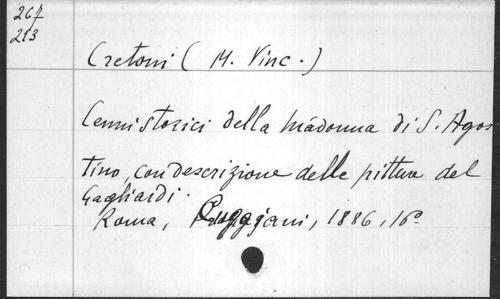 267
213
Cretoni (M. Vinc.)
Cenni storici della Madonna di S. Agos
tino, con descrizione delle pitture del
Gagliardi.
Roma, 1886, 16º